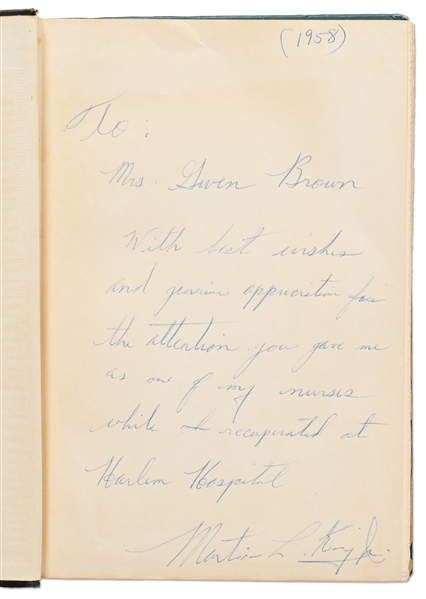 (1958)
To:
Mrs. Gwen Brown
With best wishes
and genuine appreciation for
the attention you gave me
as one of my nurses
while I recuperated at
Harlem Hospital
Martin L. King Jr.